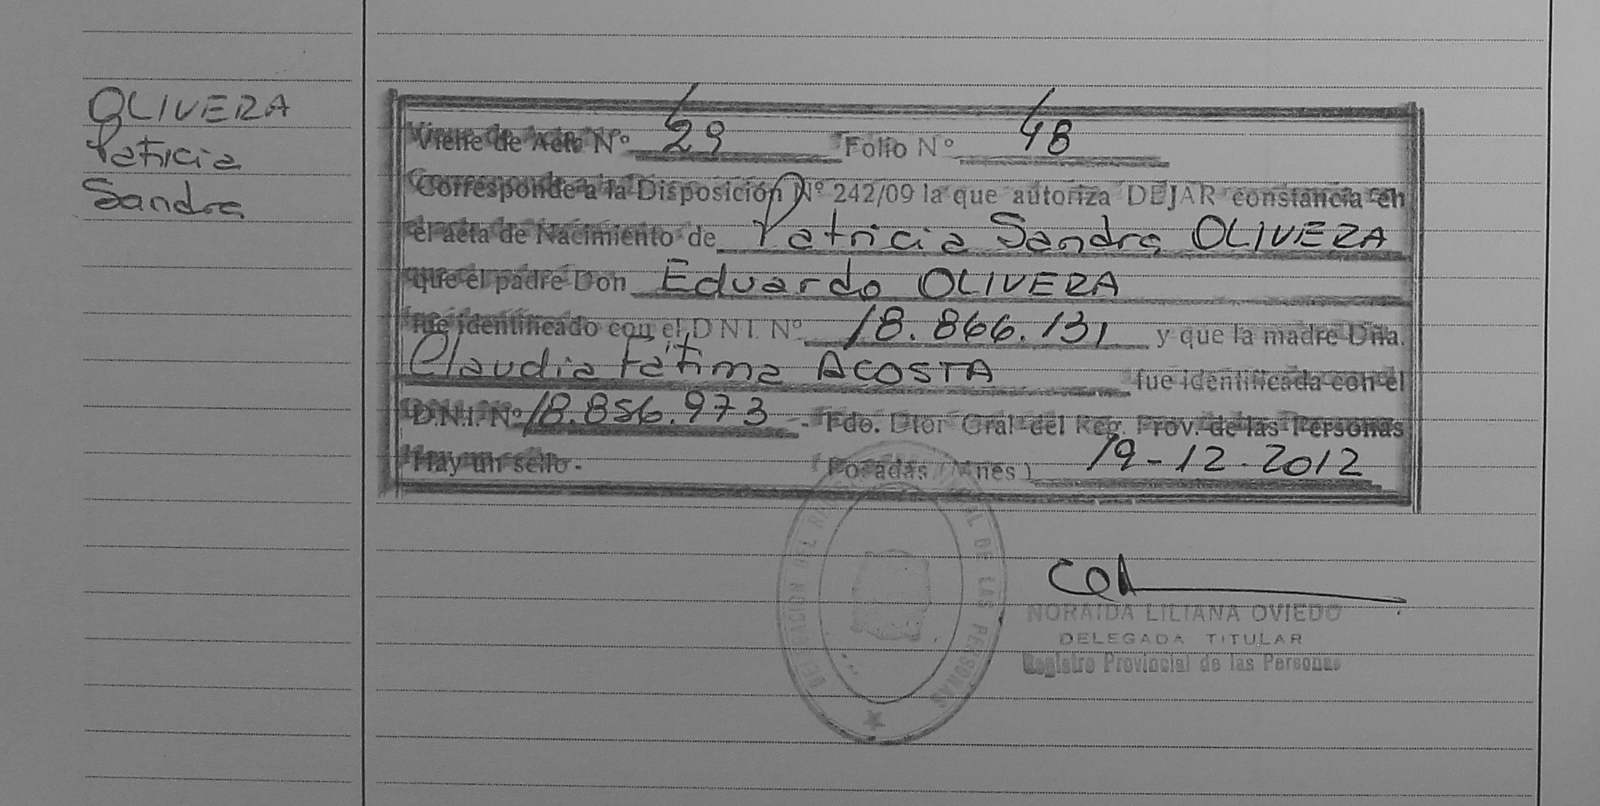 OLIVERA
Patricia
Sandra
Viene de Acta Nº 29 Folio Nº 48
Corresponde a la Disposición Nº 242/09 la que autoriza DEJAR constancia en
el acta de Nacimiento de Patricia Sandra OLIVERA
que el padre Don Eduardo OLIVERA
fue identificado con el D.N.I. Nº 18.866.131 y que la madre Dña.
Claudia Fátima ACOSTA fue identificada con el
D.N.I. Nº 18.856.973 - Fdo. Dtor Gral del Reg. Prov. de las Personas
Hay un sello.- Posadas (Mnes) 19-12-2012
NORAIDA LILIANA OVIEDO
DELEGADA TITULAR
Registro Provincial de las Personas
DE LAS PERSONAS